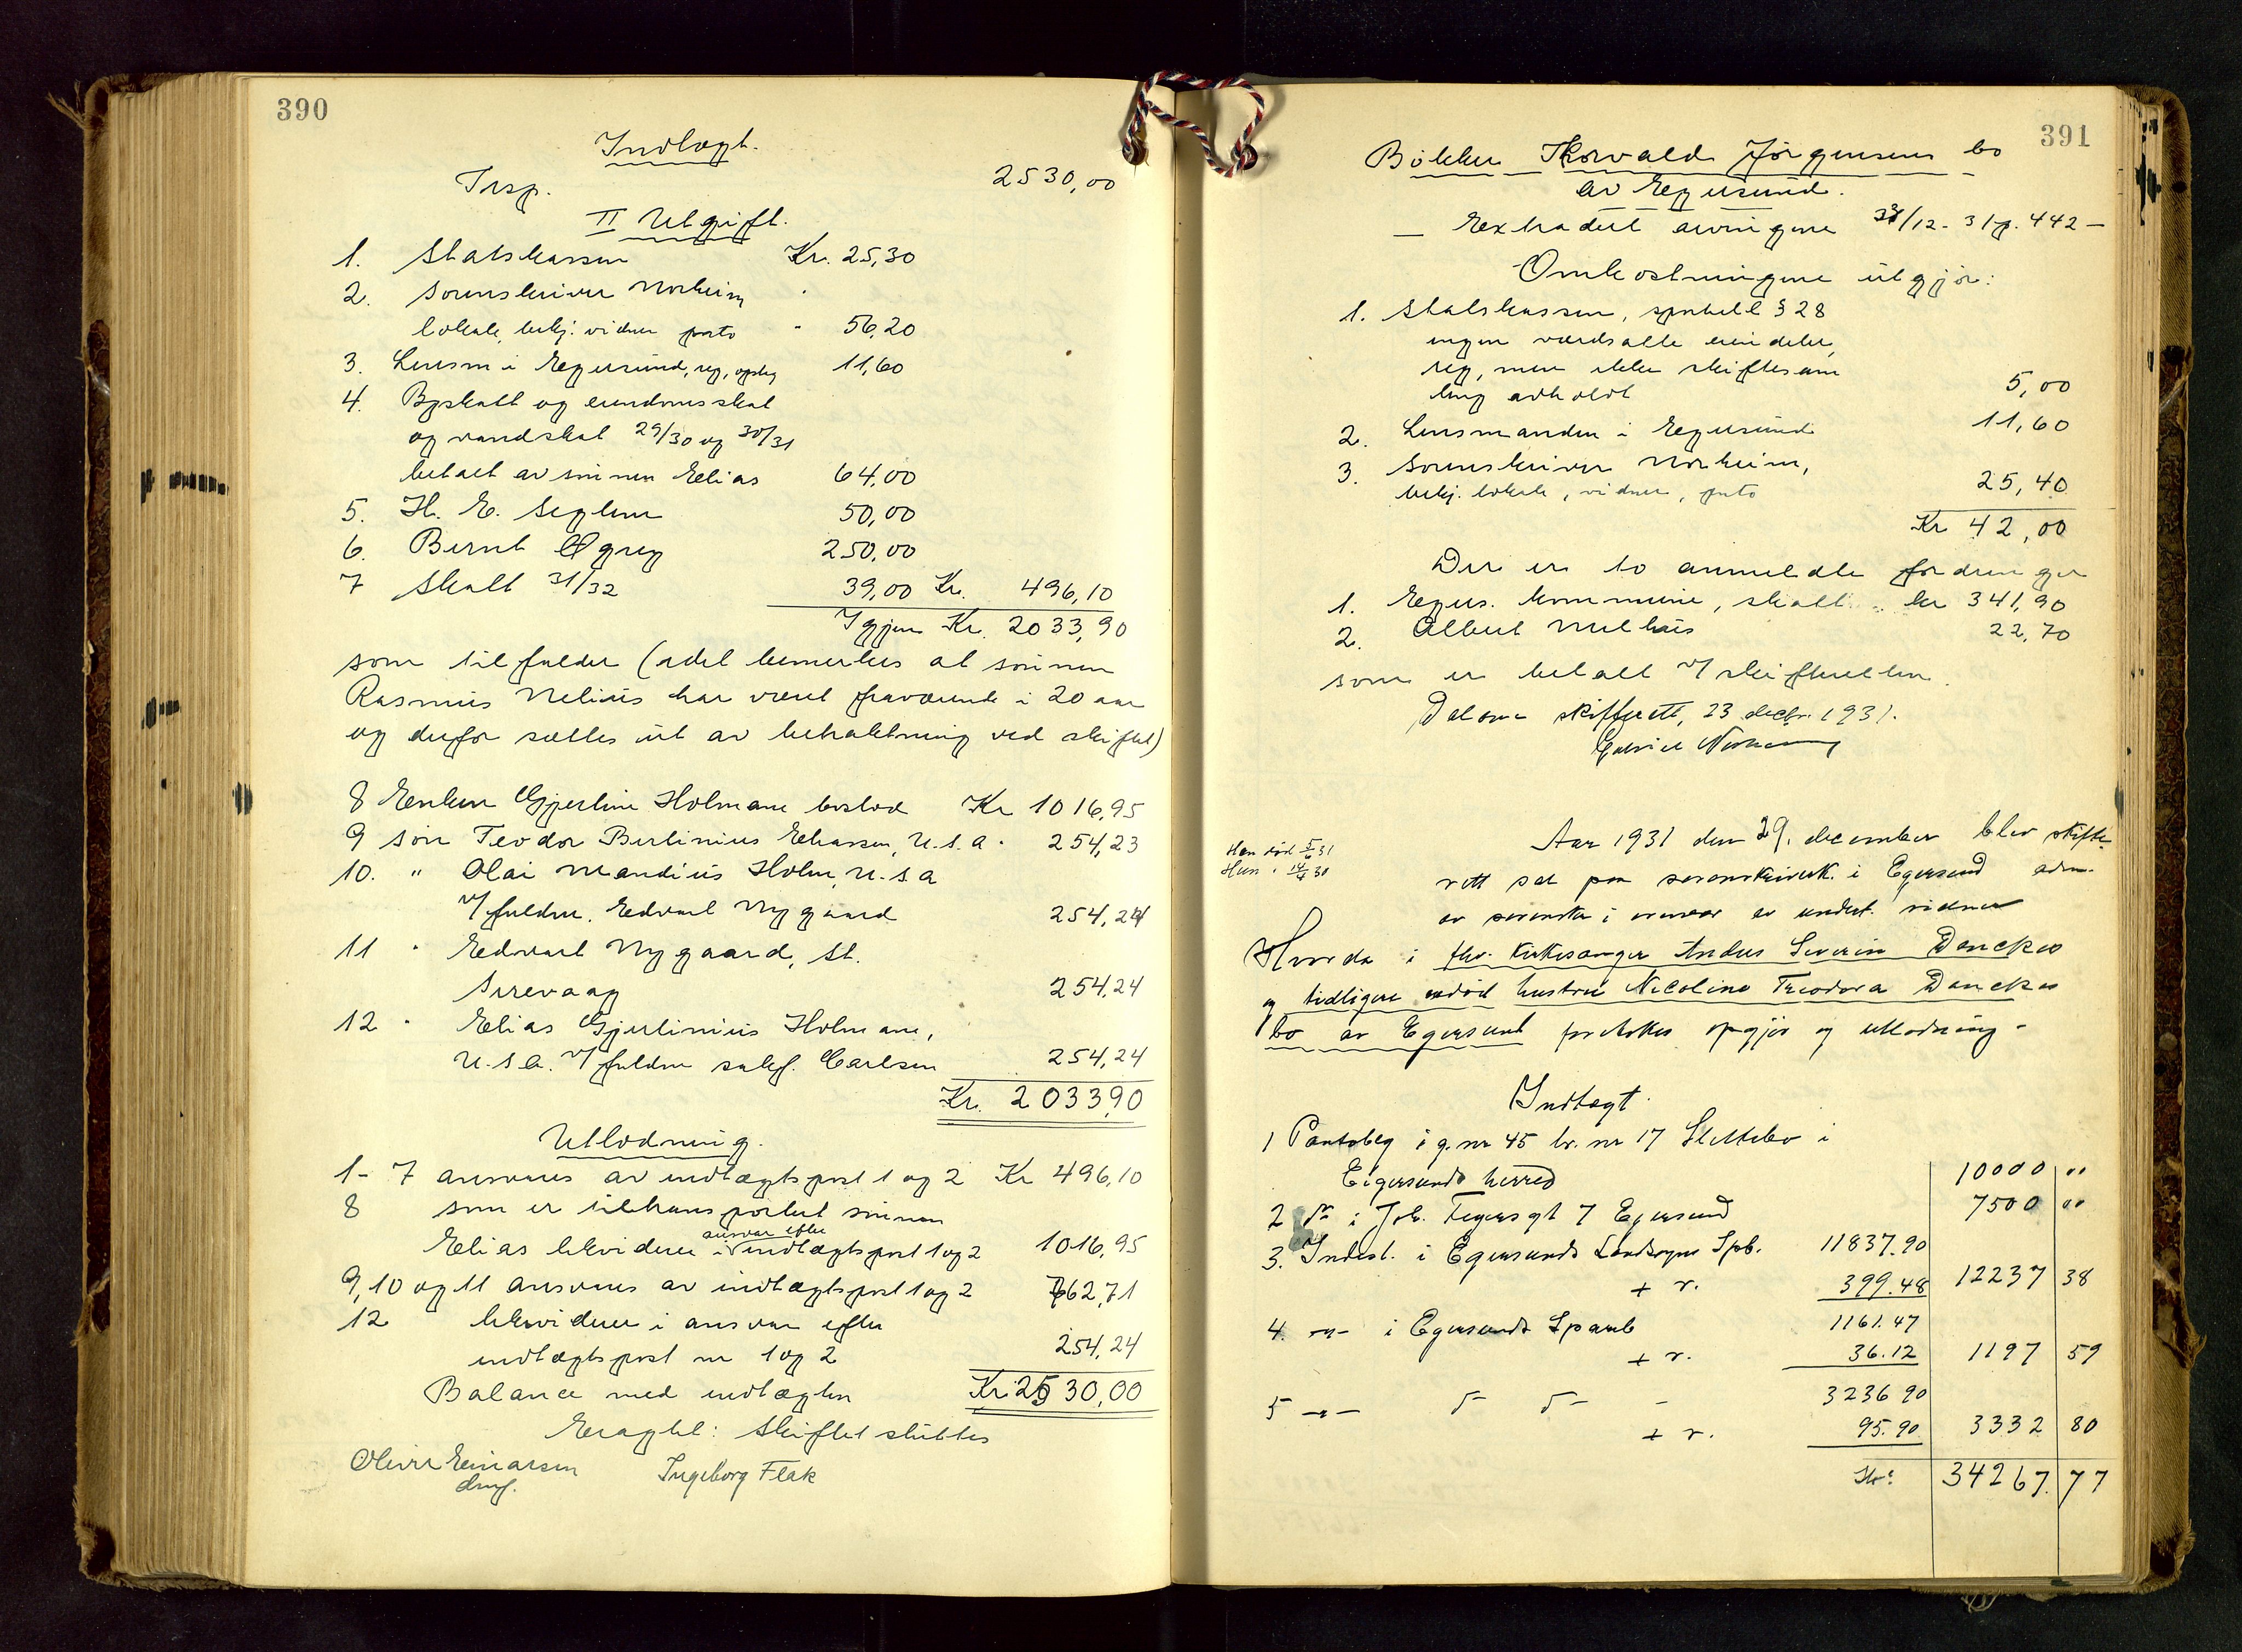 390
Indtægt.
Trsp. 2530,00
II Utgift.
1. Statskassen Kr. 25,30
2. Sorenskriver Norheim
lokale, bekj. vidner porto " 56,20
3. Lensm i Egersund, reg, opslag 11,60
4. Byskatt og eiendomsskat
og vandskat 29/30 og 30/31
betalt av sønnen Elias 64,00
5. H. E. Seglem 50,00
6. Bernt Øgrey 250,00
7 Skatt 31/32 39,00 Kr. 496,10
Igjen Kr. 2033,90
som tilfalder (idet bemerkes at sønnen
Rasmus Nelius har været fraværende i 20 aar
og derfor sættes ut av betraktning ved skiftet)
8 Enken Gjertine Holmane boslod Kr 1016,95
9 søn Teodor Bertinius Eliassen, U.S.A. 254,23
10. " Olai Mandius Holm, U.S.A
v/ fuldm. Edvart Nygaard 254,24
11 " Edvart Nygaard, St.
Sirevaag 254,24
12 " Elias Gjertinius Holmane,
U.S.A. v/ fuldm sakf. Carlsen 254,24
Kr. 2033,90
Utlodning.
1-7 ansvares av indtægtspost 1 og 2 Kr 496,10
8 som er tiltransportert sønnen
ansvar efter
Elias likviderer i indtægtspost 1 og 2 1016,95
9, 10 og 11 ansvares av indtægtspost 1 og 2 762,71
12 likviderer i ansvar efter
indtægtspost nr 1 og 2 254,24
Balance med indtægten Kr. 2530,00
Eragtet: Skiftet sluttes
Oliver Einarsen Ingeborg Flak
drmf.
391
Bøkker Thorvald Jørgensens bo
av Egersund.
— Extradert arvingene 31/12-31 p. 442 —
Omkostningene utgjør:
1. Statskassen, sportell § 28
ingen værdsatte eiendeler,
reg, men ikke skiftesam
ling avholdt 5,00
2. Lensmanden i Egersund 11,60
3. Sorenskriver Norheim,
bekj. lokale, vidner, porto 25,40
Kr 42,00
Der er to anmeldte fordringer
1. Egers. kommune, skatt kr 341,90
2. Albert Melhus 22,70
som er betalt v/ skifteretten.
Dalane skifterett, 23 decbr. 1931.
Gabriel Norheim
Han død 5/6 31
Hun " 14/4 30
Aar 1931 den 29. december blev skifte-
rett sat paa sorenskriverk. i Egersund adm.
av sorenskr. i overvær av undert. vidner
Hvorda i fhv. kirkesanger Andus Severin Danckes
og tidligere avdød hustru Nicoline Theodora Danckes
bo av Egersund foretokes opgjør og utlodning.
Indtægt
1 Pantobleg i g.nr 45 br. nr 17 Slettebø i
Eigersunds herred 10000 "
2 do i Joh. Feyersgt 7 Egersund 7500 "
3. Indest. i Egersunds Landsogns Spb. 11837.90
+ r. 399.48 12237 38
4. —"— i Egersunds Spareb 1161.47
+ r. 36.12 1197 59
5 —"— 3236 90
+ r. 95.90 3332 80
Kr: 34267.77